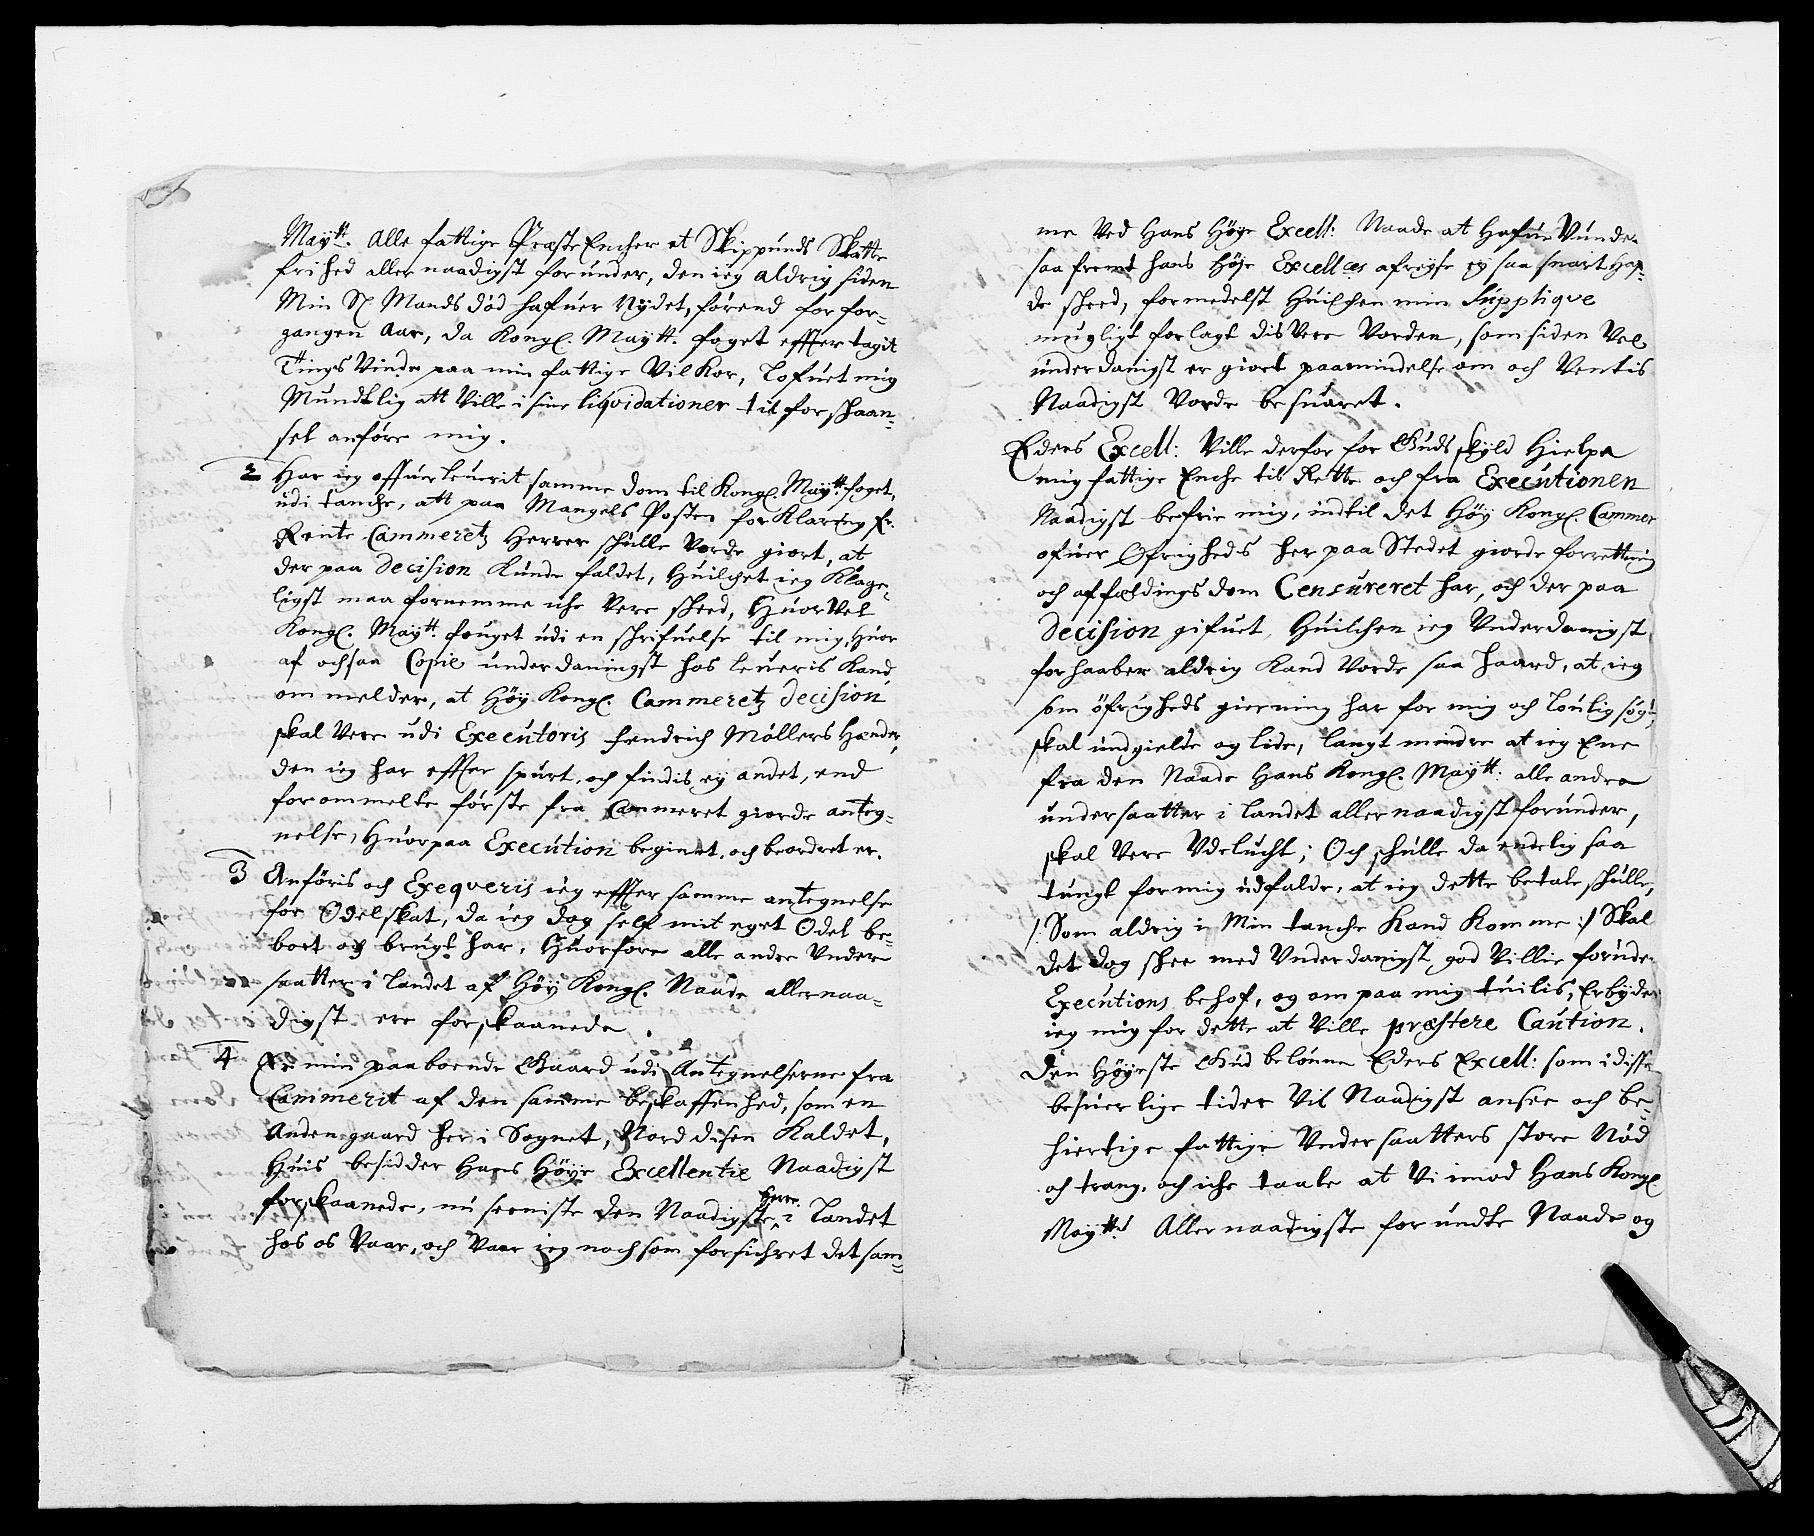 Maytt. Alle fattige Præste Encher et Skippunds Skatte
frihed aller naadigst forunder, den ieg aldrig siden
Min Sl Mands död hafuer Nydet, förend for for=
gangen Aar, da Kongl. Maytt. foget effter tagit
Tings Vinde paa min fattige Vilkor, Lofuet mig
Mundtlig att Ville i sine liqvidationer til forschaan=
sel anföre mig.
2 Har ieg offuerleuerit samme dom til Kongl. Maytt. foget,
udi tanche, att paa Mangels Posten forklaring fr.
Rente Cammeretz Herrer schulle Vorde giort, at
der paa Decision Kunde faldet, Huilchet ieg Klage=
ligst maa fornemme iche Vere scheed, Huor Vel
Kongl. Maytt. fouget udi en schrifuelse til mig, Huor
af ochsaa Copie underdanigst hos leueris Kand
om melder, at Höy Kongl. Cammeretz Decision
skal Vere udi Executoris Hendrich Möllers Hænder,
den ieg har effter spurt, och findis ey andet, end
forommelte förste fra Cammeret giorde anteg=
nelse, Huorpaa Execution begient, och beordret er.
3 Anföris och Exeqveris ieg effter samme antegnelse
for Odelskat, da ieg dog self mit eget Odel be=
boet og brugt har, Huorfore alle andre Under
saatter i Landet af Höy Kongl. Naade allernaa=
digst ere forskaanede.
4 Er min paaboende Gaard udi Antegnelserne fra
Cammerit af den samme beskaffenhed, som en
Anden gaard her i Sognet, Nord disen Kaldet,
Huis besidder Hans Höye Excellentie Naadigst
forskaanede, nu seeniste den Naadigste Herre i Landet
hos os Vaar, och Vaar ieg noch som forsichret det sam=
me Ved Hans Höye Excell: Naade at Hafue Vunden
saa fremt hans Höye Excell ces afreyse ey saa snart Haf=
de scheed, formedelst Huilchen min Supplique
mugligt forlagt dis Vere Vorden, som siden Vel
underdanigst er giort paamindelse om och Ventis
Naadigst Vorde besuaret.
Eders Excell: Ville derfor for Guds skyld Hielpe
mig fattige Enche til Rette och fra Executionen
Naadigst befrie mig, indtil det Höy Kongl. Cammer
ofuer Öfrigheds her paa Stedet giorde forretning
och affældings dom Censureret har, och der paa
Decision gifuet, Huilchen ieg Underdanigst
forhaaber aldrig Kand Vorde saa haard, at ieg
som öfrigheds gierning har for mig och Loulig sögt,
skal undgielde og lide, langt mindre at ieg Ene
fra den Naade Hans Kongl. Maytt: alle andre
undersaatter i Landet allernaadigst forunder,
skal Vere Udelucht; Och schulle da endelig saa
tungt for mig udfalde, at ieg dette betale schulle,
/: Som aldrig i Min tanche Kand Komme :/ Skal
det dog schee med Underdanigst god Villie foruden
Executions behof, og om paa mig tuilis, Erbyder
ieg mig for dette at Ville præstere Caution.
Den Höyeste Gud belönne Eders Excell: som i disse
besuerlige tider Vil Naadigst ansee och be=
hiertige fattige Undersaatters store Nöd
och trang, och iche taale at Vi imod Hans Kongl
Maytts Allernaadigste forundte Naade og